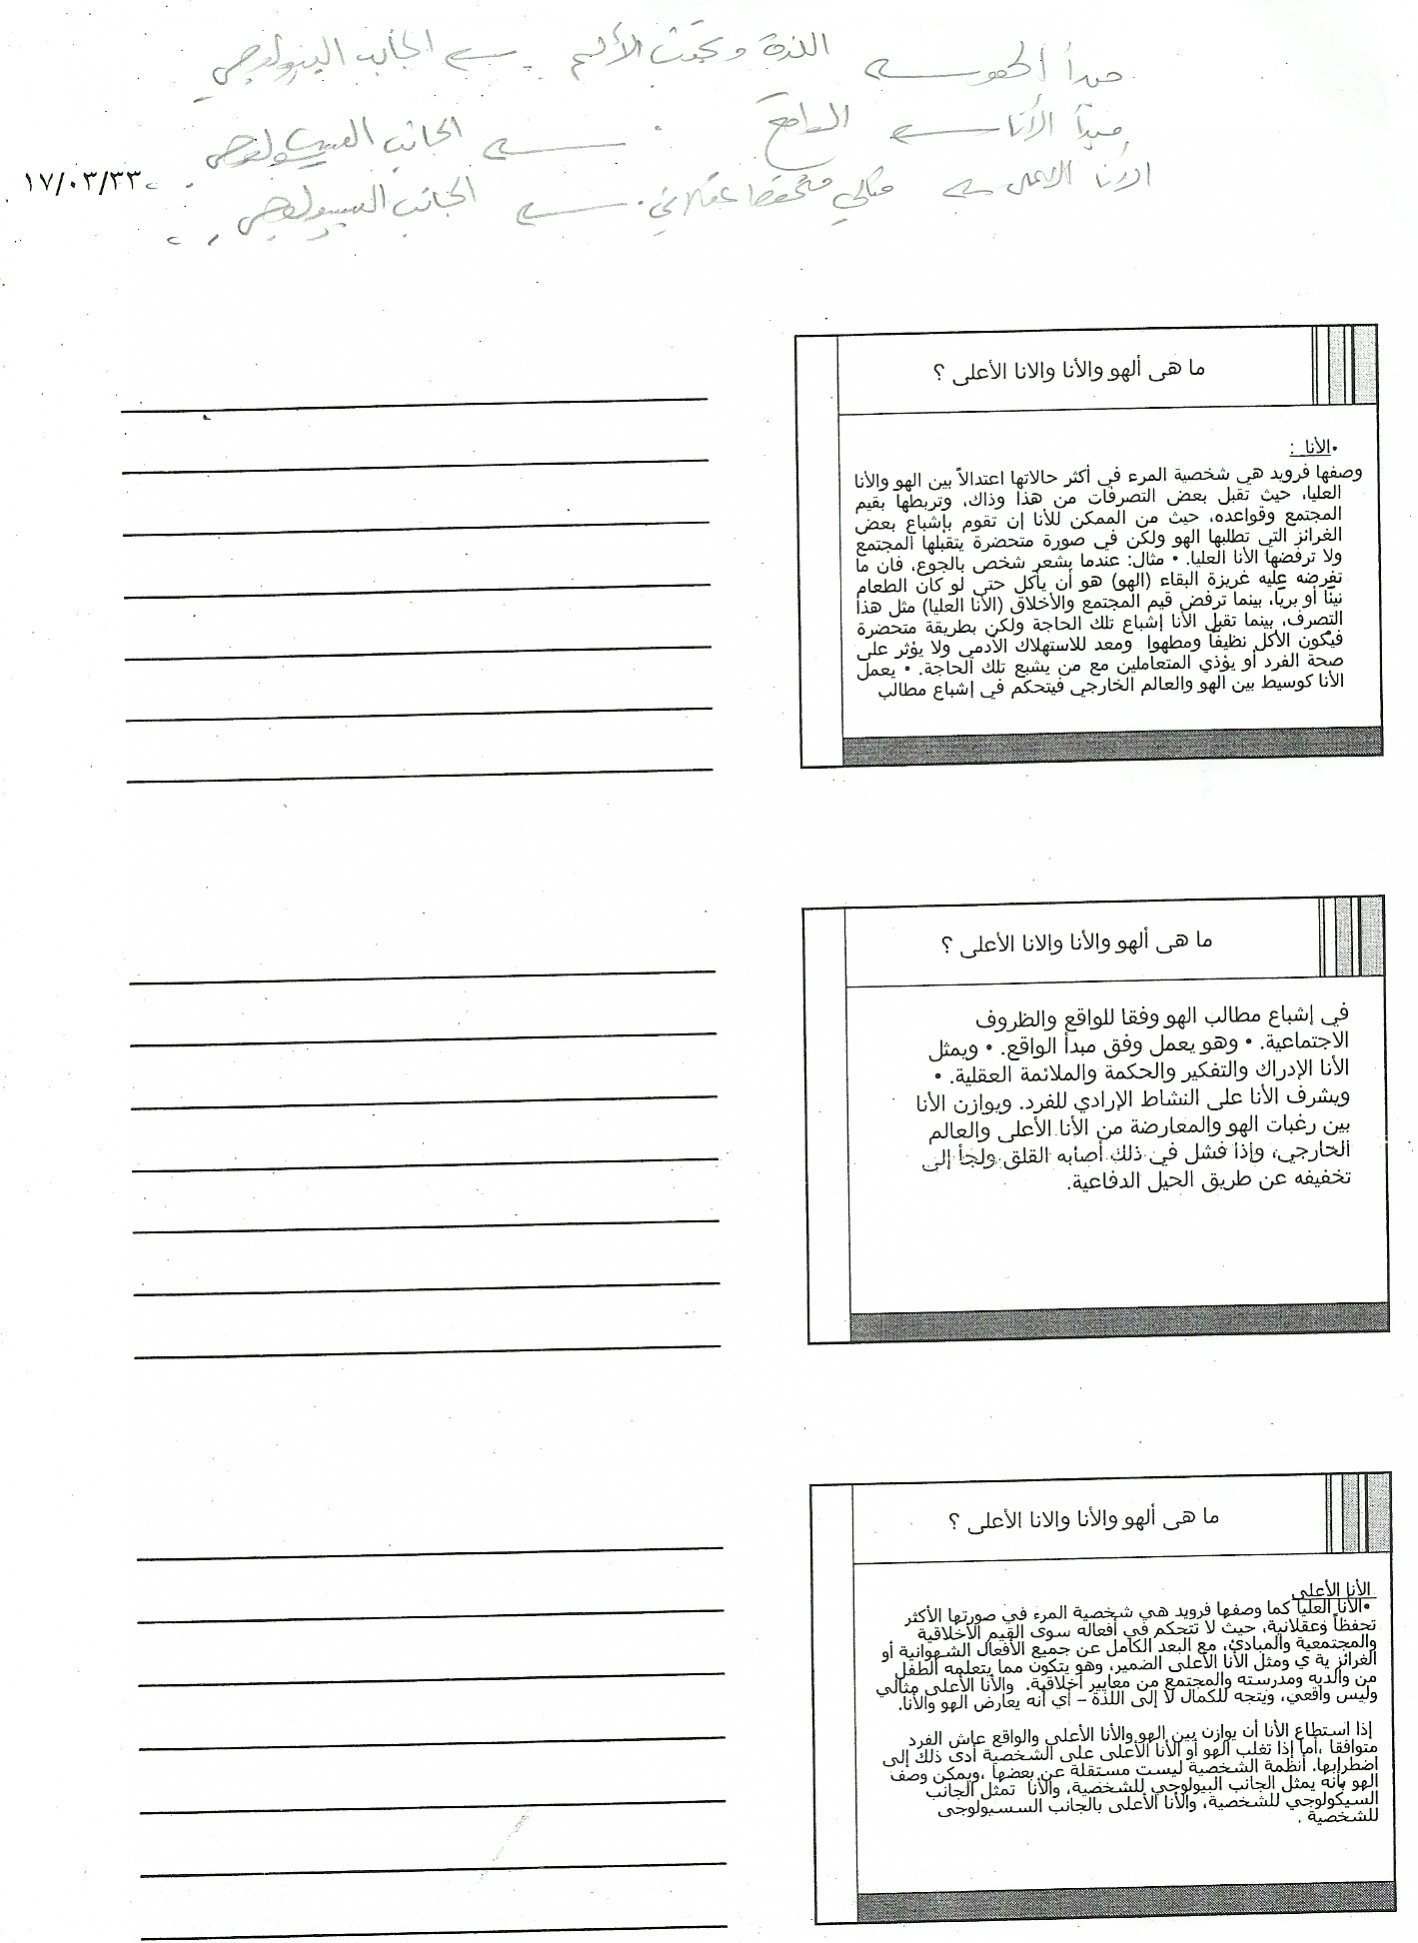 مبدأ الهو اللذة وتجنب الألم الجانب البيولوجي
مبدأ الأنا الواقع الجانب السيكولوجي
الأنا الأعلى مثالي متحفظ عقلاني الجانب السيسيولوجي
١٧/٠٣/٣٣
ما هى ألهو والأنا والانا الأعلى ؟
•الأنا :
وصفها فرويد هي شخصية المرء في أكثر حالاتها اعتدالاً بين الهو والأنا
العليا، حيث تقبل بعض التصرفات من هذا وذاك، وتربطها بقيم
المجتمع وقواعده، حيث من الممكن للأنا إن تقوم بإشباع بعض
الغرائز التي تطلبها الهو ولكن في صورة متحضرة يتقبلها المجتمع
ولا ترفضها الأنا العليا. • مثال: عندما يشعر شخص بالجوع، فان ما
تفرضه عليه غريزة البقاء (الهو) هو أن يأكل حتى لو كان الطعام
نيئًا أو بريًا، بينما ترفض قيم المجتمع والأخلاق (الأنا العليا) مثل هذا
التصرف، بينما تقبل الأنا إشباع تلك الحاجة ولكن بطريقة متحضرة
فيكون الأكل نظيفاً ومطهوا ومعد للاستهلاك الآدمي ولا يؤثر على
صحة الفرد أو يؤذي المتعاملين مع من يشبع تلك الحاجة. • يعمل
الأنا كوسيط بين الهو والعالم الخارجي فيتحكم في إشباع مطالب
ما هى ألهو والأنا والانا الأعلى ؟
في إشباع مطالب الهو وفقا للواقع والظروف
الاجتماعية. • وهو يعمل وفق مبدأ الواقع. • ويمثل
الأنا الإدراك والتفكير والحكمة والملائمة العقلية. •
ويشرف الأنا على النشاط الإرادي للفرد. ويوازن الأنا
بين رغبات الهو والمعارضة من الأنا الأعلى والعالم
الخارجي، وإذا فشل في ذلك أصابه القلق ولجأ إلى
تخفيفه عن طريق الحيل الدفاعية.
ما هى ألهو والأنا والانا الأعلى ؟
الأنا الأعلى
•الأنا العليا كما وصفها فرويد هي شخصية المرء في صورتها الأكثر
تحفظاً وعقلانية، حيث لا تتحكم في أفعاله سوى القيم الأخلاقية
والمجتمعية والمبادئ، مع البعد الكامل عن جميع الأفعال الشهوانية أو
الغرائز ية ي ومثل الأنا الأعلى الضمير، وهو يتكون مما يتعلمه الطفل
من والديه ومدرسته والمجتمع من معايير أخلاقية. والأنا الأعلى مثالي
وليس واقعي، ويتجه للكمال لا إلى اللذة – أي أنه يعارض الهو والأنا.
إذا استطاع الأنا أن يوازن بين الهو والأنا الأعلى والواقع عاش الفرد
متوافقا ،أما إذا تغلب الهو أو الأنا الأعلى على الشخصية أدى ذلك إلى
اضطرابها. أنظمة الشخصية ليست مستقلة عن بعضها ،ويمكن وصف
الهو بأنه يمثل الجانب البيولوجي للشخصية، والأنا تمثل الجانب
السيكولوجي للشخصية، والأنا الأعلى بالجانب السسيولوجى
للشخصية .